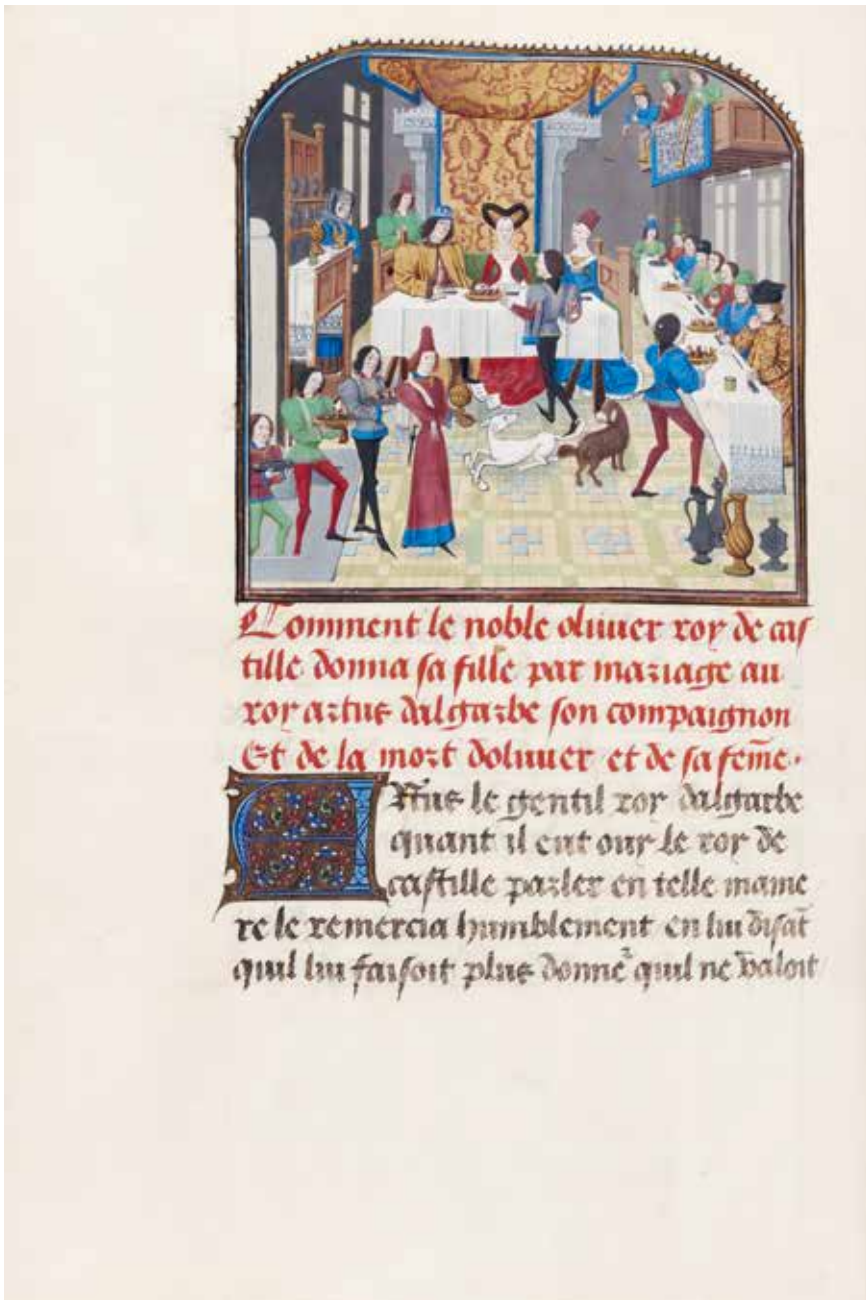 Comment le noble oliuer roy de cas
tille donna sa fille par mariage au
roy artus dalgarbe son compaignon
Et de la mort doliuer et de sa fēme.
Artus le gentil roy dalgarbe
quant il eut ouy le roy de
castille parler en telle manie
re le remercia humblement en lui disāt
quil lui faisoit plus donne² quil ne valoit